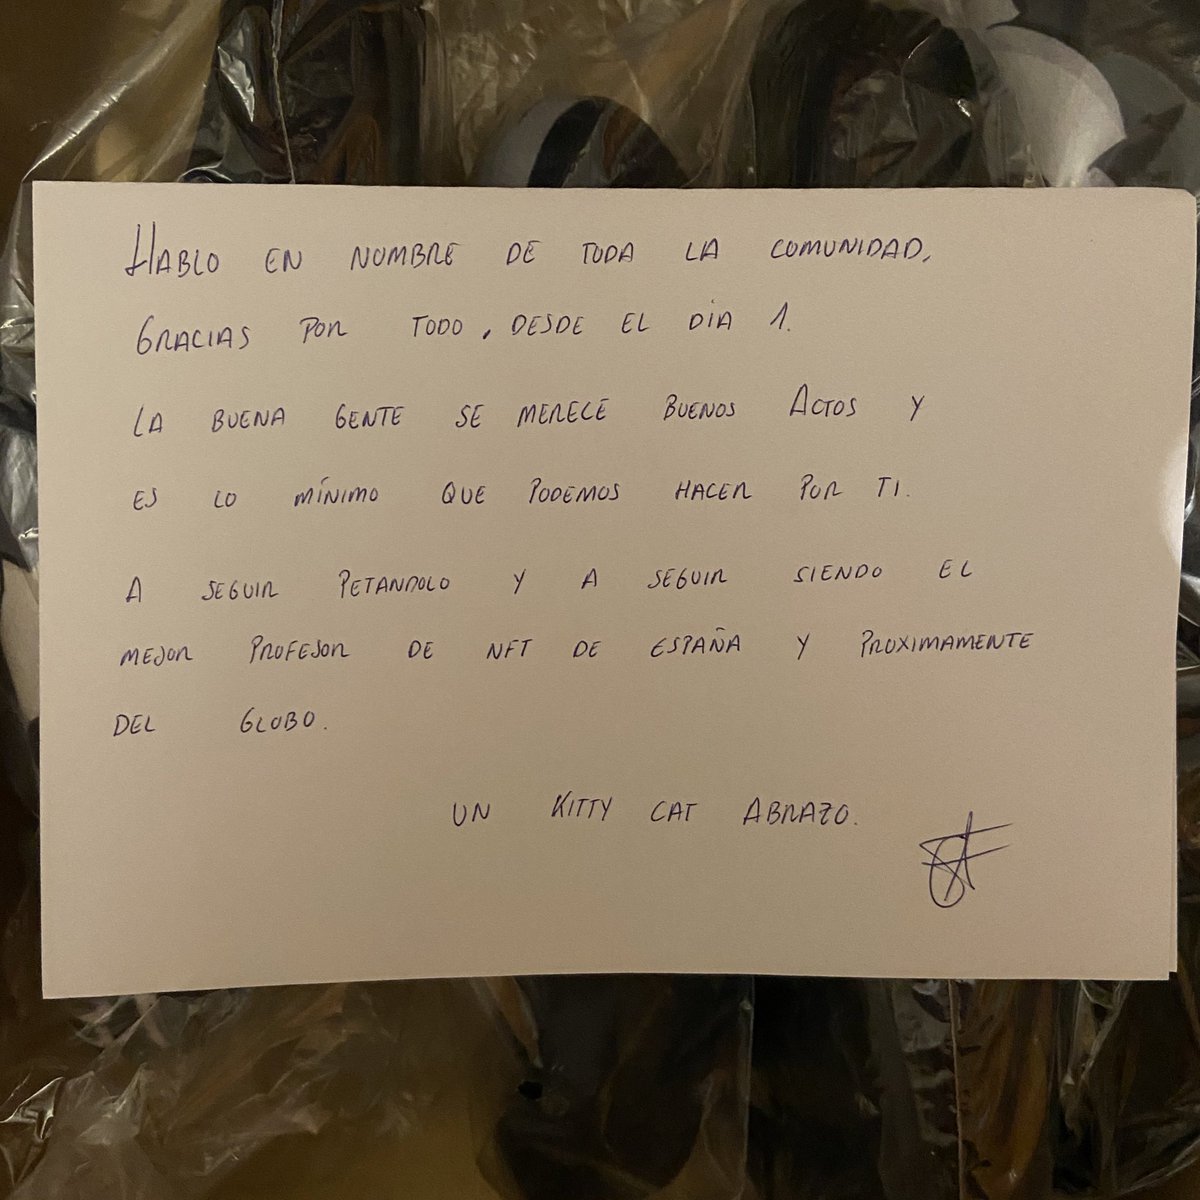 HABLO EN NOMBRE DE TODA LA COMUNIDAD,
GRACIAS POR TODO, DESDE EL DIA 1.
LA BUENA GENTE SE MERECE BUENOS ACTOS Y
ES LO MÍNIMO QUE PODEMOS HACER POR TI.
A SEGUIR PETANDOLO Y A SEGUIR SIENDO EL
MEJOR PROFESOR DE NFT DE ESPAÑA Y PROXIMAMENTE
DEL GLOBO.
UN KITTY CAT ABRAZO.